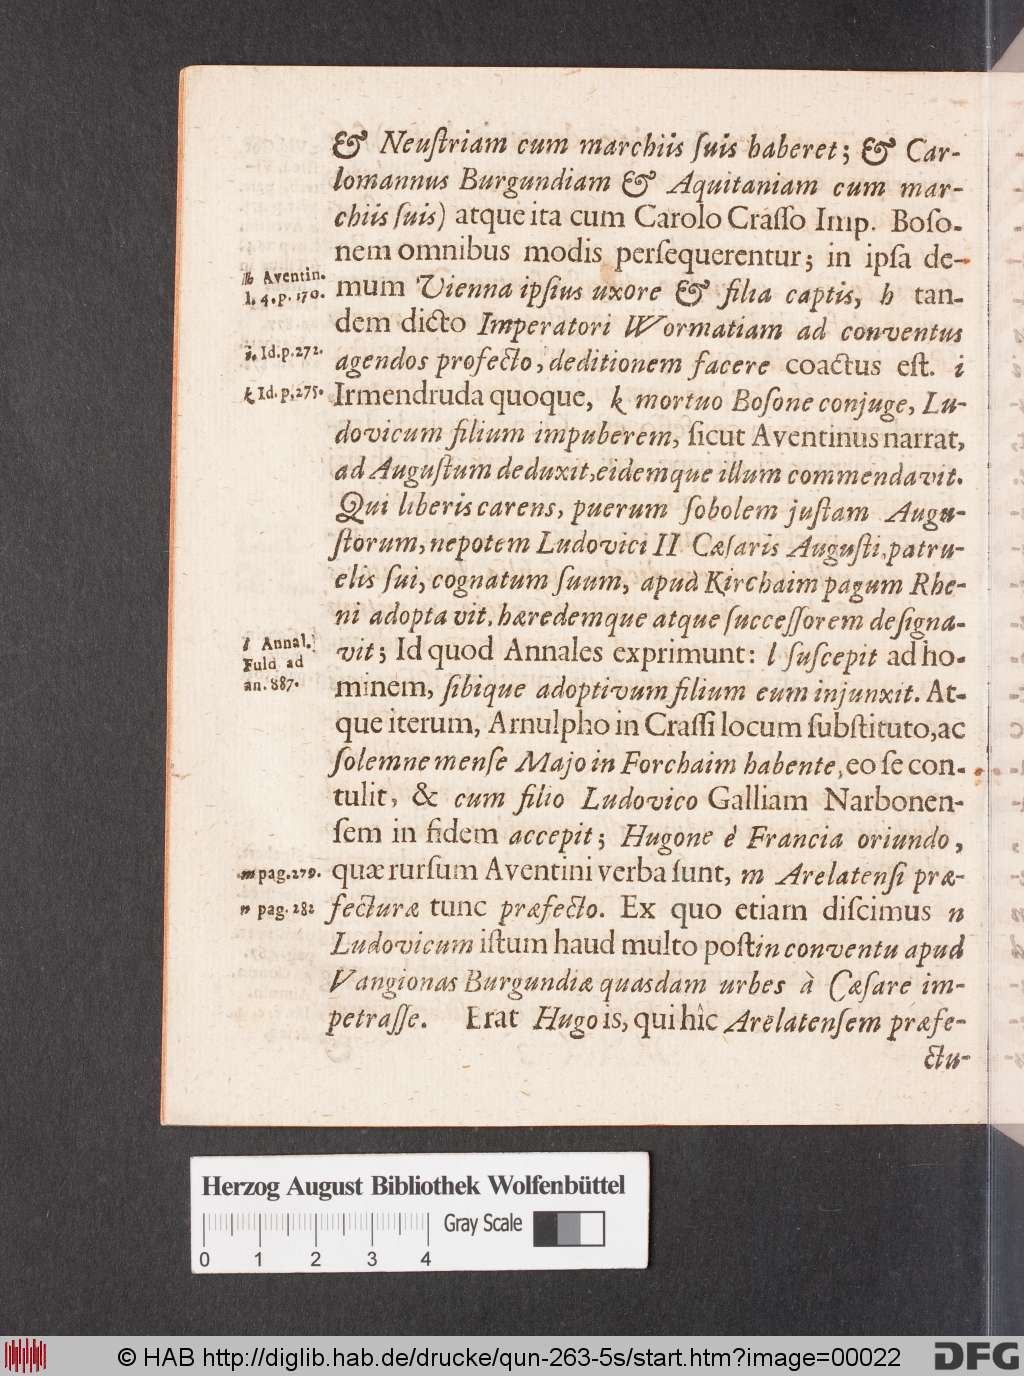 & Neuſtriam cum marchiis ſuis haberet; & Car-
lomannus Burgundiam & Aquitaniam cum mar-
chiis ſuis) atque ita cum Carolo Craſſo Imp. Boſo-
nem omnibus modis perſequerentur; in ipſa de-
h Aventin.
l. 4. p. 170.
mum Vienna ipſius uxore & filia captis, h tan-
dem dicto Imperatori Wormatiam ad conventus
i. Id. p. 272.
agendos profecto, deditionem facere coactus eſt. i
k Id. p. 275.
Irmendruda quoque, k mortuo Boſone conjuge, Lu-
dovicum filium impuberem, ſicut Aventinus narrat,
ad Auguſtum deduxit, eidemque illum commendavit.
Qui liberis carens, puerum ſobolem juſtam Augu-
ſtorum, nepotem Ludovici II Cæſaris Auguſti, patru-
elis ſui, cognatum ſuum, apud Kirchaim pagum Rhe-
ni adoptavit, hæredemque atque ſucceſſorem deſigna-
l Annal.
Fuld ad
an. 887.
vit; Id quod Annales exprimunt: l ſuſcepit ad ho-
minem, ſibique adoptivum filium eum injunxit. At-
que iterum, Arnulpho in Craſſi locum ſubſtituto, ac
ſolemne menſe Majo in Forchaim habente, eo ſe con-
tulit, & cum filio Ludovico Galliam Narbonen-
ſem in fidem accepit; Hugone è Francia oriundo,
m pag. 279.
quæ rurſum Aventini verba ſunt, m Arelatenſi præ-
n pag. 282
fecturæ tunc præfecto. Ex quo etiam diſcimus n
Ludovicum iſtum haud multo poſt in conventu apud
Vangionas Burgundiæ quasdam urbes à Cæſare im-
petraſſe. Erat Hugo is, qui hîc Arelatenſem præfe-
ctu-
Herzog August Bibliothek Wolfenbüttel
Gray Scale
0 1 2 3 4
© HAB http://diglib.hab.de/drucke/qun-263-5s/start.htm?image=00022
DFG